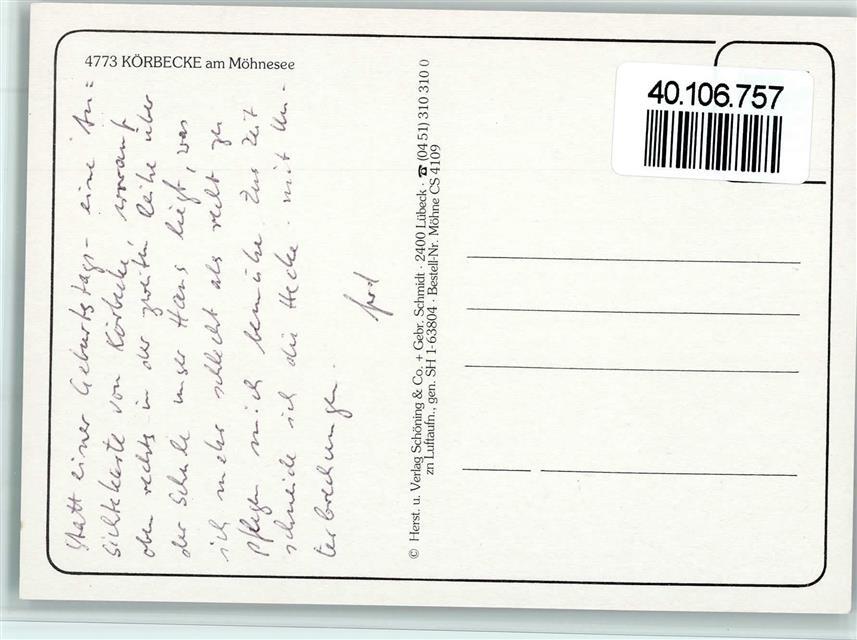 4773 KÖRBECKE am Möhnesee
40.106.757
Statt einer Geburtstags- eine An=
sichtskarte von Körbecke, worauf
oben rechts in der zweiten Reihe über
der Schule unser Haus liegt, was
ich mehr schlecht als recht zu
pflegen mich bemühe. Zur Zeit
schneide ich die Hecke - mit Un-
terbrechungen.
© Herst. u. Verlag Schöning & Co. + Gebr. Schmidt · 2400 Lübeck · ☎ (04 51) 310 310 0
zn Luftaufn., gen. SH 1-63804 · Bestell-Nr. Möhne CS 4109